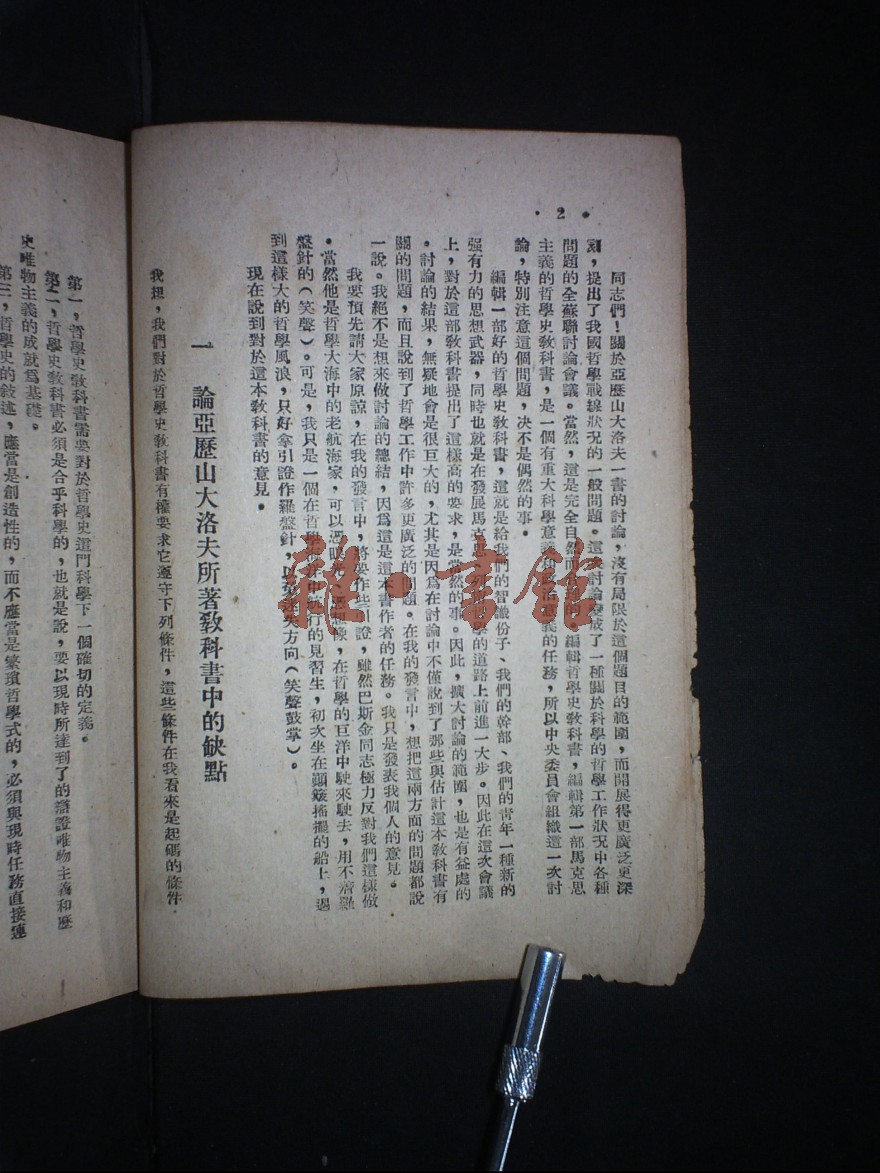 2
同志們！關於亞歷山大洛夫一書的討論，沒有局限於這個題目的範圍，而開展得更廣泛更深
刻，提出了我國哲學戰線狀況的一般問題。這次討論變成了一種關於科學的哲學工作狀況中各種
問題的全蘇聯討論會議。當然，這是完全自然而 編輯哲學史教科書，編輯第一部馬克思
主義的哲學史教科書，是一個有重大科學意義和 意義的任務，所以中央委員會組織這一次討
論，特別注意這個問題，决不是偶然的事。
編輯一部好的哲學史教科書，這就是給我們的智識份子、我們的幹部、我們的青年一種新的
強有力的思想武器，同時也就是在發展馬克思 哲學的道路上前進一大步。因此在這次會議
上，對於這部教科書提出了這樣高的要求，是當然的事。因此，擴大討論的範圍，也是有益處的
。討論的結果，無疑地會是很巨大的，尤其是因爲在討論中不僅說到了那些與估計這本教科書有
關的問題，而且說到了哲學工作中許多更廣泛的問題。在我的發言中，想把這兩方面的問題都說
一說。我絕不是想來做討論的總結，因爲這是這本書作者的任務。我只是發表我個人的意見。
我要預先請大家原諒，在我的發言中，將要作些引證，雖然巴斯金同志極力反對我們這樣做
。當然他是哲學大海中的老航海家，可以憑眼光、 ，在哲學的巨洋中駛來駛去，用不着羅
盤針的（笑聲）。可是，我只是一個在哲學 航行的見習生，初次坐在顛簸搖擺的船上，遇
到這樣大的哲學風浪，只好拿引證作羅盤針，以 迷失方向（笑聲鼓掌）。
現在說到對於這本教科書的意見。
一 論亞歷山大洛夫所著教科書中的缺點
我想，我們對於哲學史教科書有權要求它遵守下列條件，這些條件在我看來是起碼的條件，
第一，哲學史教科書需要對於哲學史這門科學下一個確切的定義。
第二，哲學史教科書必須是合乎科學的，也就是說，要以現時所達到了的辯證唯物主義和歷
史唯物主義的成就爲基礎。
第三，哲學史的敘述，應當是創造性的，而不應當是繁瑣哲學式的，必須與現時任務直接連